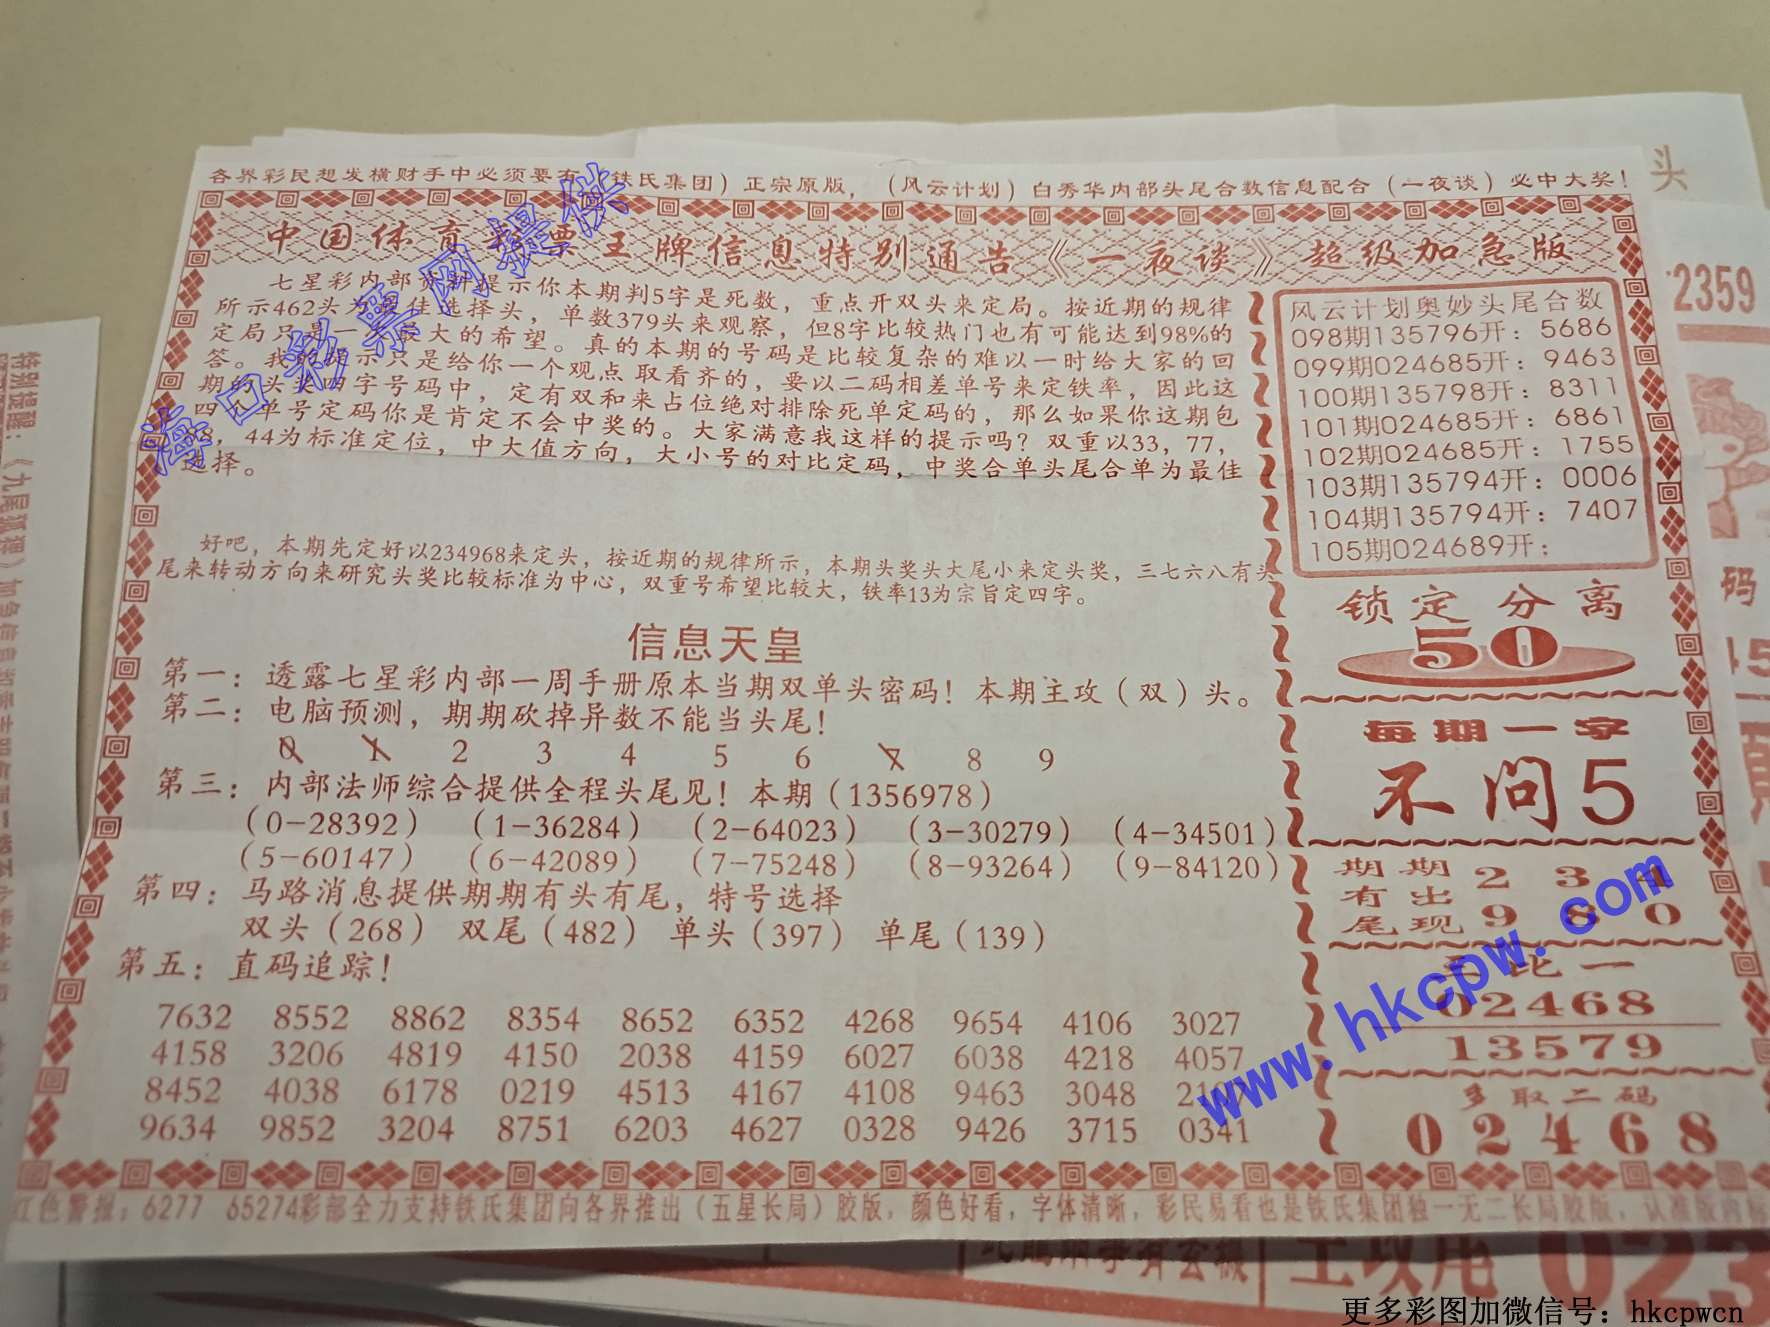 各界彩民想发横财手中必须要有（铁氏集团）正宗原版，（风云计划）白秀华内部头尾合数信息配合（一夜谈）必中大奖！
中国体育彩票王牌信息特别通告《一夜谈》超级加急版
七星彩内部资料提示你本期判5字是死数，重点开双头来定局。按近期的规律
所示462头为最佳选择头，单数379头来观察，但8字比较热门也有可能达到98%的
定局只是一个最大的希望。真的本期的号码是比较复杂的难以一时给大家的回
答。我的提示只是给你一个观点取看齐的，要以二码相差单号来定铁率，因此这
期的头奖四字号码中，定有双和来占位绝对排除死单定码的，那么如果你这期包
四个单号定码你是肯定不会中奖的。大家满意我这样的提示吗？双重以33，77，
88，44为标准定位，中大值方向，大小号的对比定码，中奖合单头尾合单为最佳
选择。
好吧，本期先定好以234968来定头，按近期的规律所示，本期头奖头大尾小来定头奖，三七六八有头
尾来转动方向来研究头奖比较标准为中心，双重号希望比较大，铁率13为宗旨定四字。
信息天皇
第一：透露七星彩内部一周手册原本当期双单头密码！本期主攻（双）头。
第二：电脑预测，期期砍掉异数不能当头尾！
0 1 2 3 4 5 6 7 8 9
第三：内部法师综合提供全程头尾见！本期（1356978）
（0-28392） （1-36284） （2-64023） （3-30279） （4-34501）
（5-60147） （6-42089） （7-75248） （8-93264） （9-84120）
第四：马路消息提供期期有头有尾，特号选择
双头（268） 双尾（482） 单头（397） 单尾（139）
第五：直码追踪！
7632 8552 8862 8354 8652 6352 4268 9654 4106 3027
4158 3206 4819 4150 2038 4159 6027 6038 4218 4057
8452 4038 6178 0219 4513 4167 4108 9463 3048
9634 9852 3204 8751 6203 4627 0328 9426 3715 0341
风云计划奥妙头尾合数
098期135796开：5686
099期024685开：9463
100期135798开：8311
101期024685开：6861
102期024685开：1755
103期135794开：0006
104期135794开：7407
105期024689开：
锁定分离
50
每期一字
不问5
期期 2 3 4
有出
尾现 9 8 0
比一
02468
13579
多取二码
02468
红色警报：6277 65274彩部全力支持铁氏集团向各界推出（五星长局）胶版，颜色好看，字体清晰，彩民易看也是铁氏集团独一无二长局胶版，认准版内标
海口彩票网提供
www.hkcpw.com
头
2359
码
特别提醒：《九尾狐狸》加急信息
主攻用 023
更多彩图加微信号：hkcpwcn